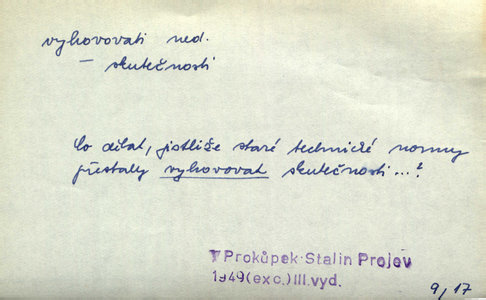 vyhovovati ned.
— skutečnosti
Co dělat, jestliže staré technické normy
přestaly vyhovovat skutečnosti...?
Prokůpek-Stalin Projev
1949(exc.)III.vyd.
9/17